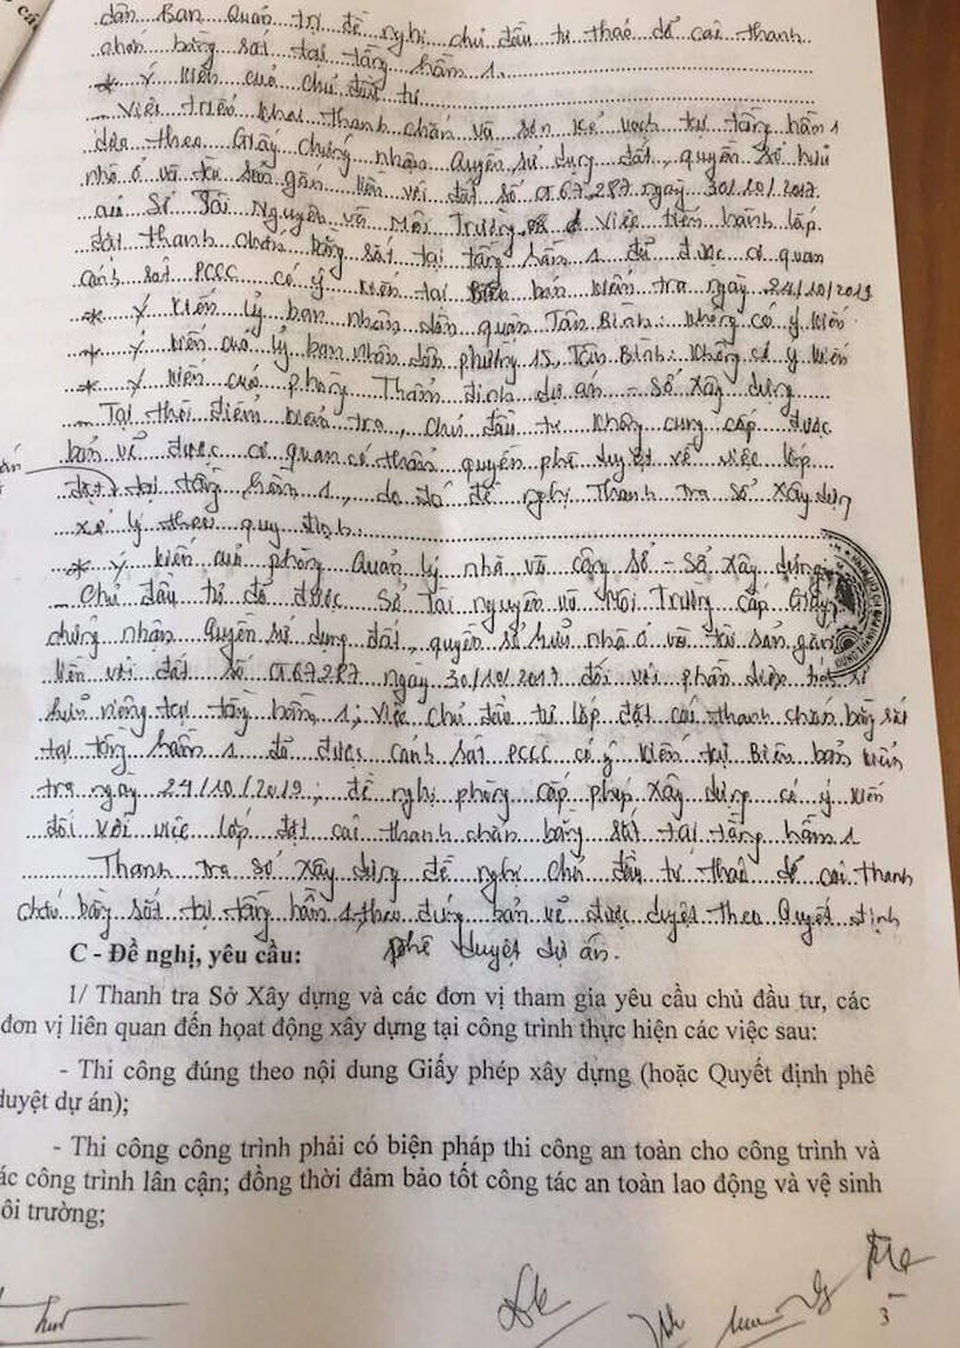 dân Ban Quản trị đề nghị chủ đầu tư tháo dỡ cái thanh
chắn bằng sắt tại tầng hầm 1.
* Ý kiến của chủ đầu tư
- Việc triển khai thanh chắn và sơn kẻ vạch tại tầng hầm 1
dựa theo Giấy chứng nhận Quyền sử dụng đất, quyền sở hữu
nhà ở và tài sản gắn liền với đất số 67287 ngày 30/10/2017
của Sở Tài Nguyên và Môi Trường Việc tiến hành lắp
đặt thanh chắn bằng sắt tại tầng hầm 1 đã được cơ quan
cảnh sát PCCC có ý kiến tại Biên bản kiểm tra ngày 24/10/2019
* Ý kiến Ủy ban nhân dân quận Tân Bình: Không có ý kiến
* Ý kiến của Ủy ban nhân dân phường 15, Tân Bình: Không có ý kiến
* Ý kiến của phòng Thẩm định dự án - Sở Xây dựng
- Tại thời điểm kiểm tra, chủ đầu tư không cung cấp được
bản vẽ được cơ quan có thẩm quyền phê duyệt về việc lắp
đặt tại tầng hầm 1, do đó đề nghị Thanh tra Sở Xây dựng
xử lý theo quy định.
* Ý kiến của phòng Quản lý nhà và công sở - Sở Xây dựng
- Chủ đầu tư đã được Sở Tài nguyên và Môi Trường cấp Giấy
chứng nhận Quyền sử dụng đất, quyền sở hữu nhà ở và tài sản gắn
liền với đất số 67287 ngày 30/10/2017 đối với phần diện tích sở
hữu riêng tại tầng hầm 1; việc Chủ đầu tư lắp đặt cái thanh chắn bằng sắt
tại tầng hầm 1 đã được cảnh sát PCCC có ý kiến tại Biên bản kiểm
tra ngày 24/10/2019; đề nghị phòng cấp phép xây dựng có ý kiến
đối với việc lắp đặt cái thanh chắn bằng sắt tại tầng hầm 1
Thanh tra Sở Xây dựng đề nghị Chủ đầu tư tháo dỡ cái thanh
chắn bằng sắt tại tầng hầm 1 theo đúng bản vẽ được duyệt theo Quyết định
phê duyệt dự án.
C - Đề nghị, yêu cầu:
1/ Thanh tra Sở Xây dựng và các đơn vị tham gia yêu cầu chủ đầu tư, các
đơn vị liên quan đến hoạt động xây dựng tại công trình thực hiện các việc sau:
- Thi công đúng theo nội dung Giấy phép xây dựng (hoặc Quyết định phê
duyệt dự án);
- Thi công công trình phải có biện pháp thi công an toàn cho công trình và
ác công trình lân cận; đồng thời đảm bảo tốt công tác an toàn lao động và vệ sinh
ôi trường;
3